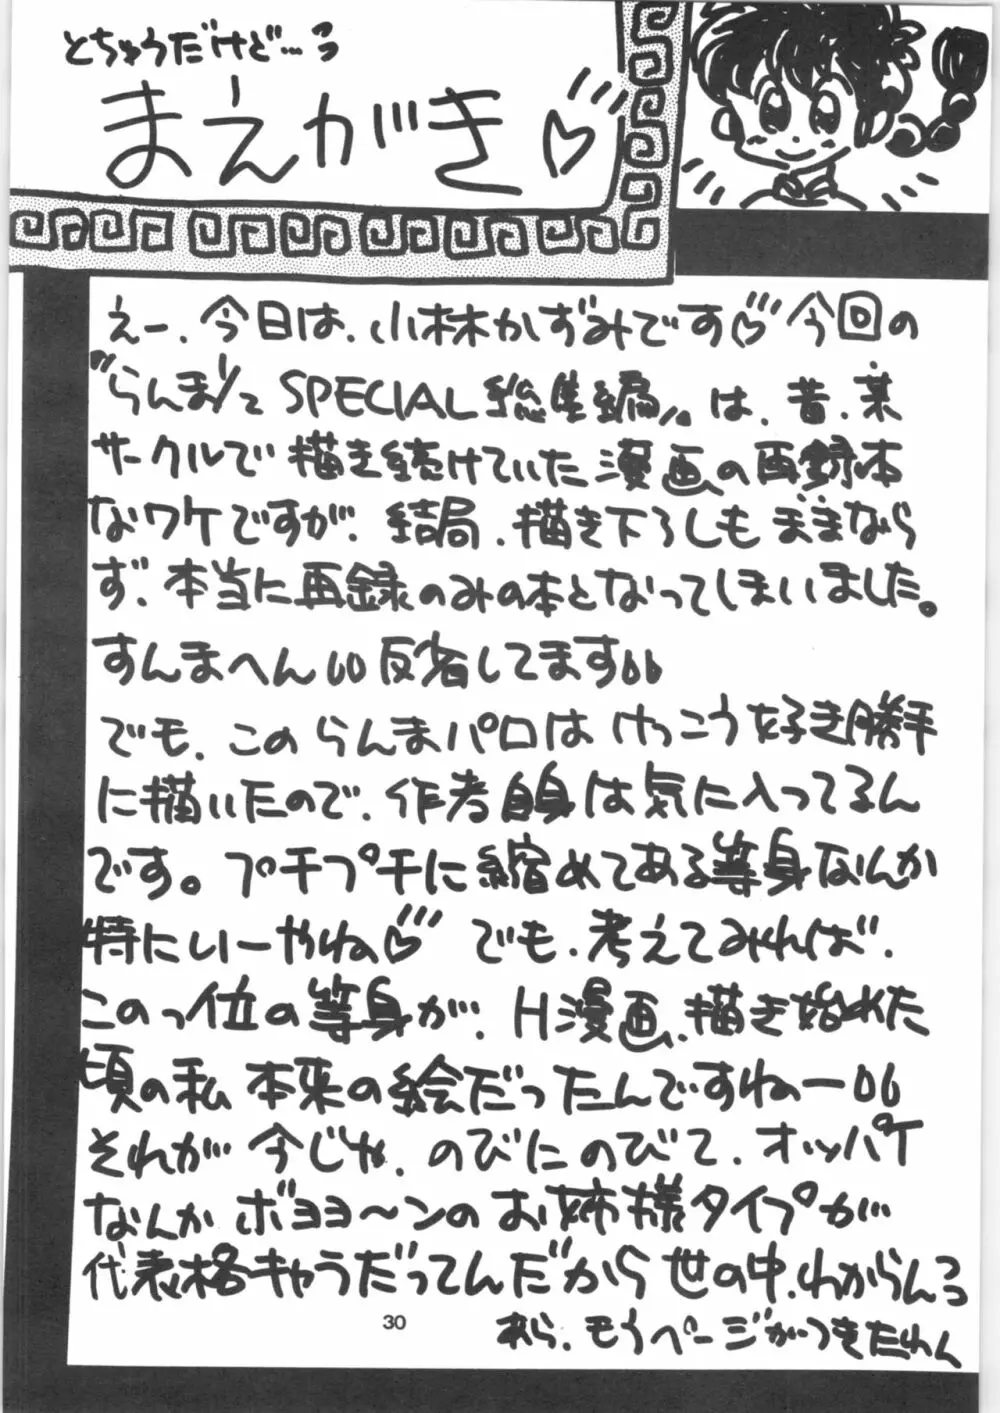 とちゅうだけど…っ
まえがき♡
えー、今日は、小林かずみです♡今回の
"らんま1/2 SPECIAL 総集編"は、昔、某
サークルで描き続けていた漫画の再録本
なワケですが、結局、描き下ろしもままなら
ず、本当に再録のみの本となってしまいました。
すんまへん 反省してます
でも、このらんまパロはけっこう好き勝手
に描いたので、作者自身は気に入ってるん
です。プチプチに縮めてある等身なんか
特にいーやね♡でも、考えてみれば、
このっ位の等身が、H漫画、描き始めた
頃の私本来の絵だったんですねー
それが今じゃ、のびにのびて、オッパイ
なんかボヨヨ〜ンのお姉様タイプが
代表格キャラだってんだから世の中、わからんっっ
30
あら、もうページがつきたわん